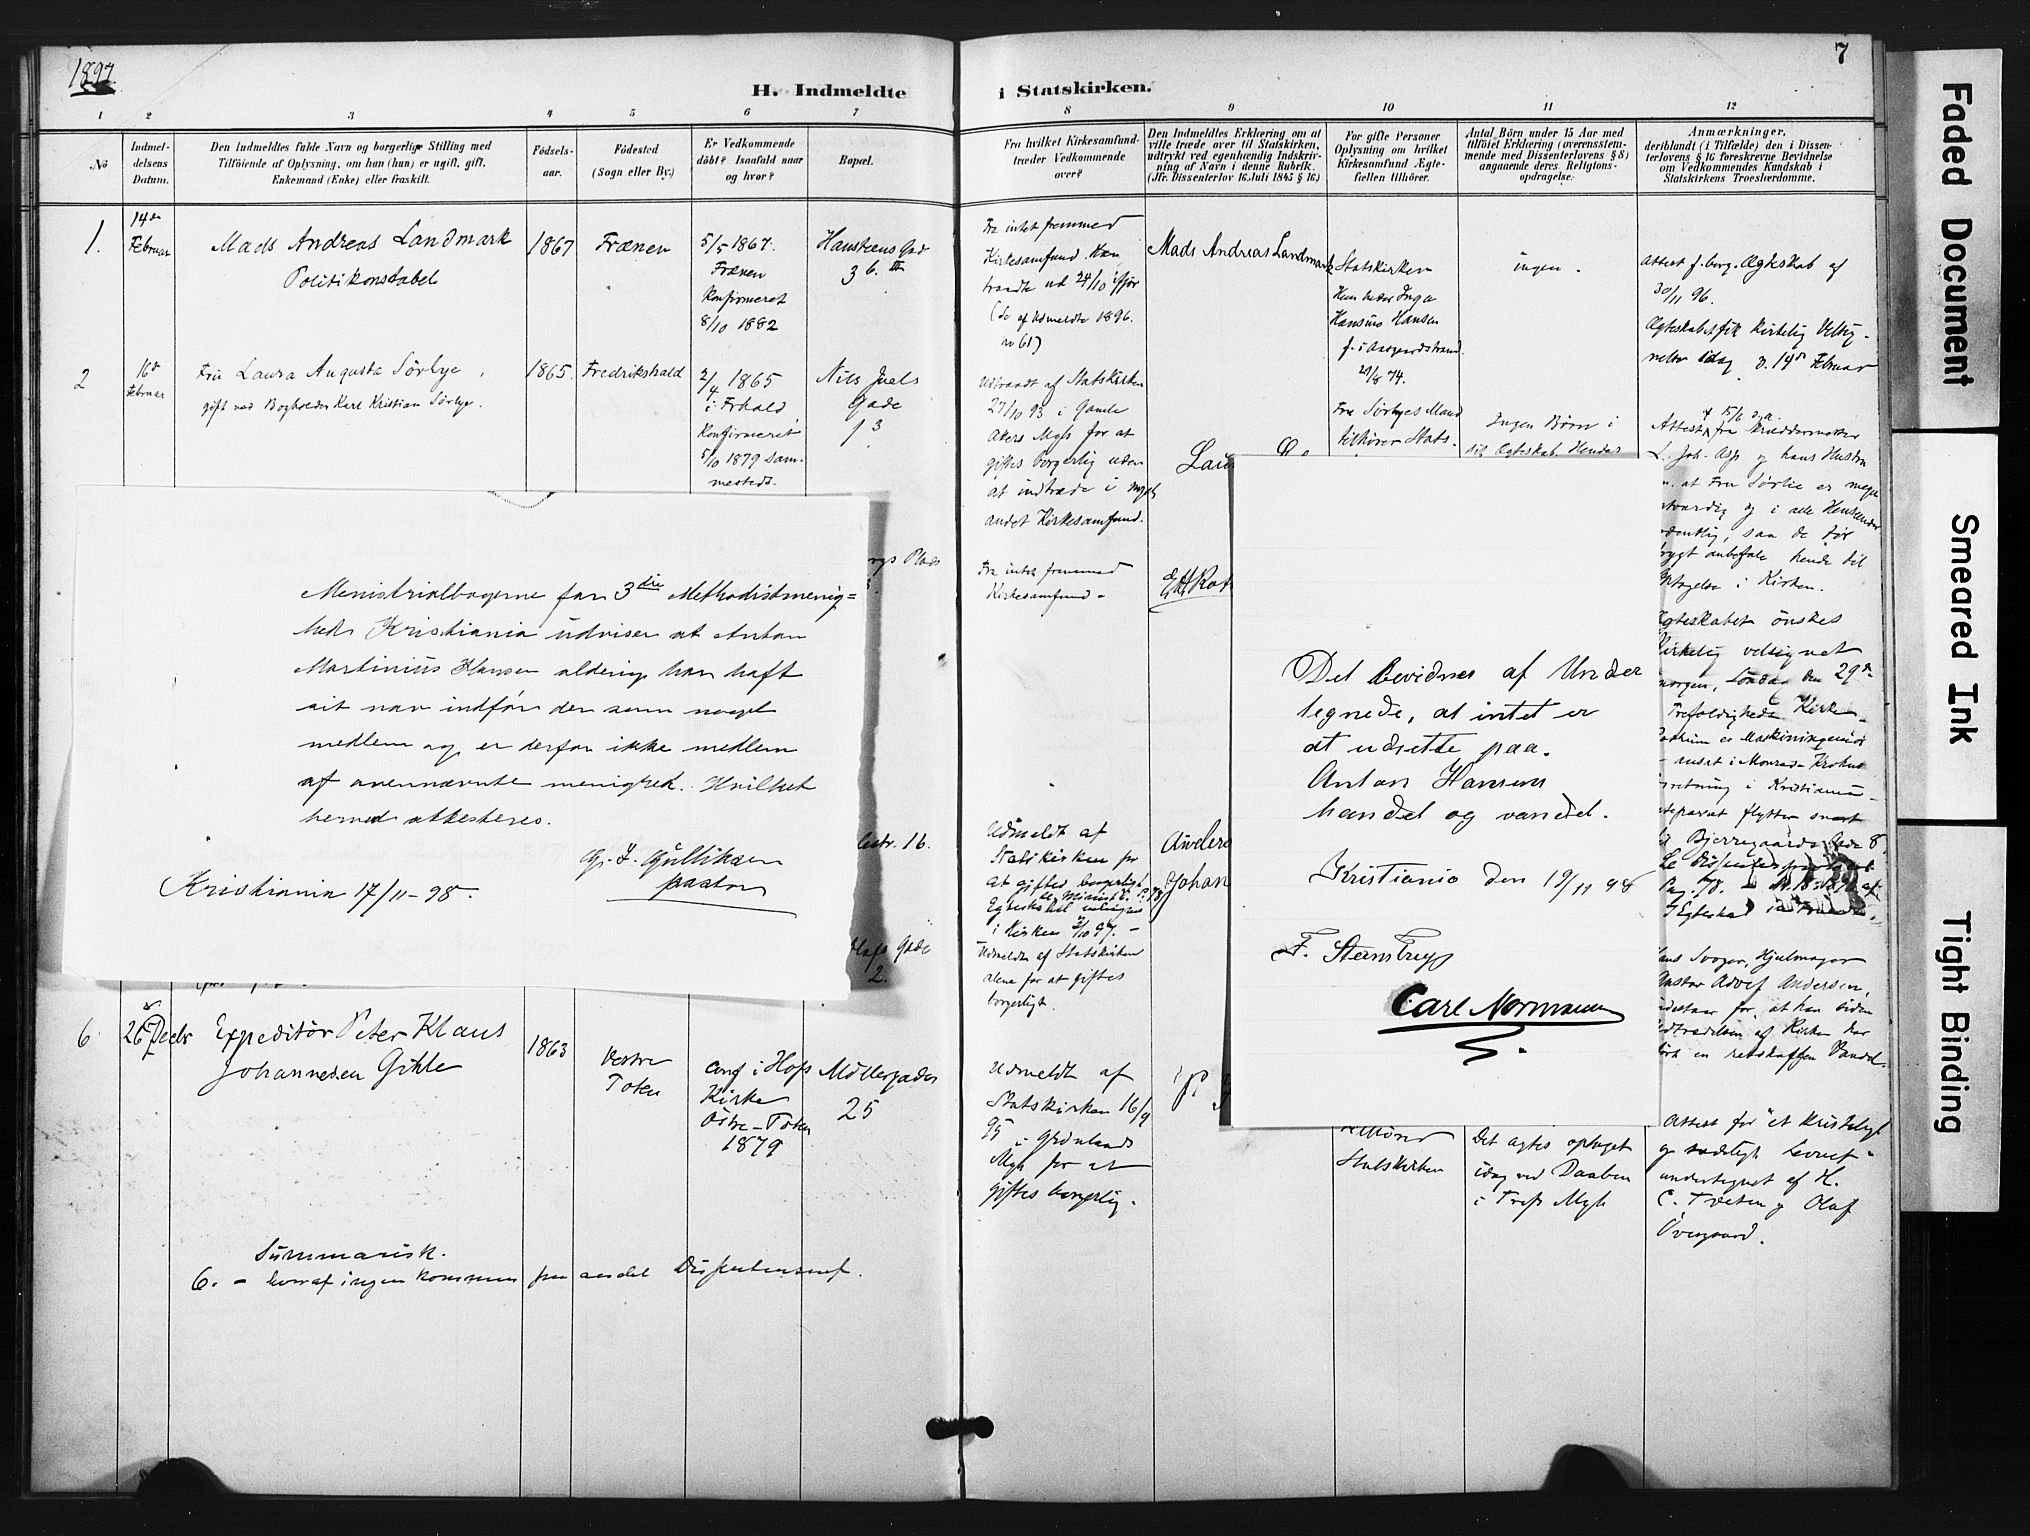 1897.
7
H. Indmeldte i Statskirken.
1 2 3 4 5 6 7 8 9 10 11 12
No
Indmel-
delsens
Datum.
Den Indmeldtes fulde Navn og borgerlige Stilling med
Tilföiende af Oplysning, om han (hun) er ugift, gift,
Enkemand (Enke) eller fraskilt.
Födsels-
aar.
Födested
(Sogn eller By.)
Er Vedkommende
döbt? Isaafald naar
og hvor?
Bopæl.
Fra hvilket Kirkesamfund-
træder Vedkommende
over?
Den Indmeldtes Erklæring om at
ville træde over til Statskirken,
udtrykt ved egenhændig Indskriv-
ning af Navn i denne Rubrik.
(Jfr. Dissenterlov 16 Juli 1845 § 16)
For gifte Personer
Oplysning om hvilket
Kirkesamfund Ægte-
fællen tilhörer.
Antal Börn under 15 Aar med
tilföiet Erklæring (overensstem-
mende med Dissenterlovens § 8)
angaaende deres Religions-
opdragelse.
Anmærkninger,
deriblandt (i Tilfælde) den i Dissen-
terlovens § 16 foreskrevne Bevidnelse
om Vedkommendes Kundskab i
Statskirkens Troesherdomme.
1.
14de
Februar
Mads Andreas Landmark
Politikonstabel
1867
Frænen
5/5 1867.
Frænen
Konfirmeret
8/10 1882
Hansteens Gad
3 b. III
Fra intet fremmed
Kirkesamfund. Han
traadte ud 24/10 ifjor
(se af Udmeldte 1896.
no 61)
Mads Andreas Landmark
Statskirken
Hun heder Inga
Hansine Hansen
f. i Aasgaardstrand.
29/8 74.
ingen.
Attest f. borg. Ægteskab af
30/11 96.
Ægteskabet fik kirkelig Velsig-
nelse idag d. 14de Februar
2
16de
Februar
Fru Laura Augusta Sörbye,
gift med Bogholder Karl Kristian Sörbye.
1865.
Fredrikshald
2/4 1865
i Frhald,
Konfirmeret
5/10 1879 sam-
mesteds.
Nils Juels
Gade
13
Udtraadt af Statskirken
27/10 93 i Gamle
Akers Mgh for at
giftes borgerlig uden
at indtræde i noget
andet Kirkesamfund.
Lau
Fru Sörbyes Mand
tilhörer Stats-
Ingen Börn i
dit Ægteskab. Hendes
Attest af 15/2 d.a.
fra Skræddermester
L. Joh. Asp og hans Hustru
at Fru Sörlie er meget
og i alle Henseender
saa de tör
trygt anbefale hende til
Optagelse i Kirken.
Plads
Fra intet fremmed
Kirkesamfund.
Ægteskabet önskes
Kirkelig velsignet
imorgen, Söndag den 29de
Trefoldigheds Kirke.
er Maskiningeniör
ansat i Monrad-Krohns
i Kristiania
flytter snart
Bjerregaards Gade 8
Ministrialbogerne for 3die Methodistmenig=
hed Kristiania udviser at Anton
Martinius Hansen aldering har haft
sit nav indfört der som noget
medlem og er derfor ikke medlem
af ovennævnte menighed. Hvilket
herved attesteres.
G. J. Gulliksen
pastor
Kristiania 17/11-98.
Det Bevidnes af Under
tegnede, at intet er
at udsette paa.
Anton Hansens
handel og vandel.
Kristiania den 19/11 98
F. Steinstrup
Carl Normann
estr. 16.
Udmeldt af
Statskirken for
at giftes borgerligt
i Kirken 3/10 97.
Johan
Olafs Gade
2.
Udmeldt af Statskirken
alene for at giftes
borgerligt.
Hans Svoger, Hjulmager
Gustav Adolf Andersen,
indestaar for, at han siden
Udtrædelsen af Kirken har
fört en retskaffen Vandel.
6.
26 Decbr
Expeditör Peter Klaus
Johannesen Gihle
1863
Vestre
Toten
conf i Hofs
Kirke
Östre-Toten
1879
Möllergaden
25
Udmeldt af
Statskirken 16/9
95 i Grönlands
Mgh for at
giftes borgerlig.
P.
tilhörer
Statskirken
Det agtes optaget
idag ved Daaben
i Trefs Mgh
Attest for "et kristeligt
og sædeligt Levnet"
undertegnet af H.
C. Tveten og Olaf
Övergaard.
Summarisk.
6. - hvoraf ingen kommen fra andet Dissentersamf.
Faded Document
Smeared Ink
Tight Binding